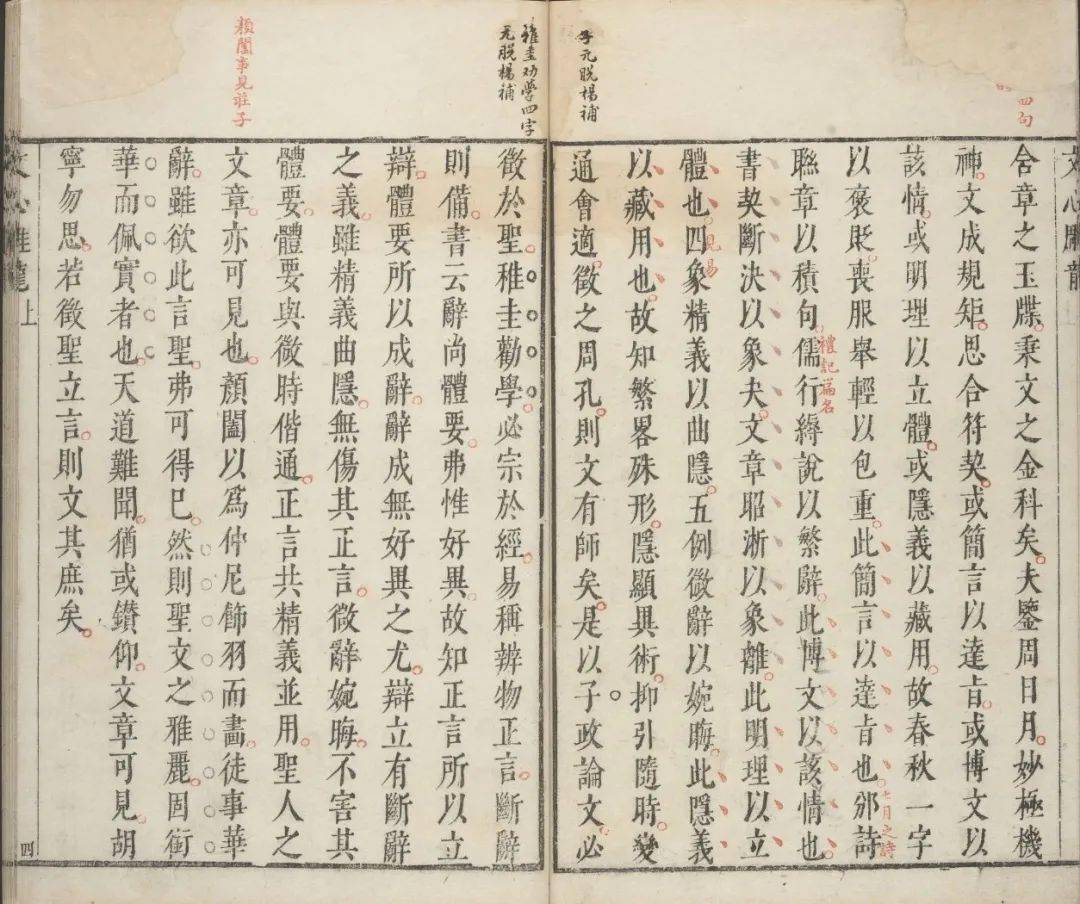 文心雕龍
四句
子元脫楊補
含章之玉牒秉文之金科矣夫鑒周日月妙極機
神文成規矩思合符契或簡言以達旨或博文以
該情或明理以立體或隱義以藏用故春秋一字
以褒貶喪服舉輕以包重此簡言以達旨也邠詩
七月之詩
聯章以積句儒行縟說以繁辭此博文以該情也
禮記篇名
書契斷決以象夬文章昭淅以象離此明理以立
體也四象精義以曲隱五例微辭以婉晦此隱義
見易
以藏用也故知繁畧殊形隱顯異術抑引隨時變
通會適徵之周孔則文有師矣是以子政論文必
稚圭劝學四字
元脫楊補
顏闔事見莊子
徵於聖稚圭勸學必宗於經易稱辨物正言斷辭
則備書云辭尚體要弗惟好異故知正言所以立
辯體要所以成辭辭成無好異之尤辯立有斷辭
之義雖精義曲隱無傷其正言微辭婉晦不害其
體要體要與微時偕通正言共精義並用聖人之
文章亦可見也顏闔以爲仲尼飾羽而畵徒事華
辭雖欲此言聖弗可得已然則聖文之雅麗固銜
華而佩實者也天道難聞猶或鑚仰文章可見胡
寧勿思若徵聖立言則文其庶矣
文心雕龍上
四